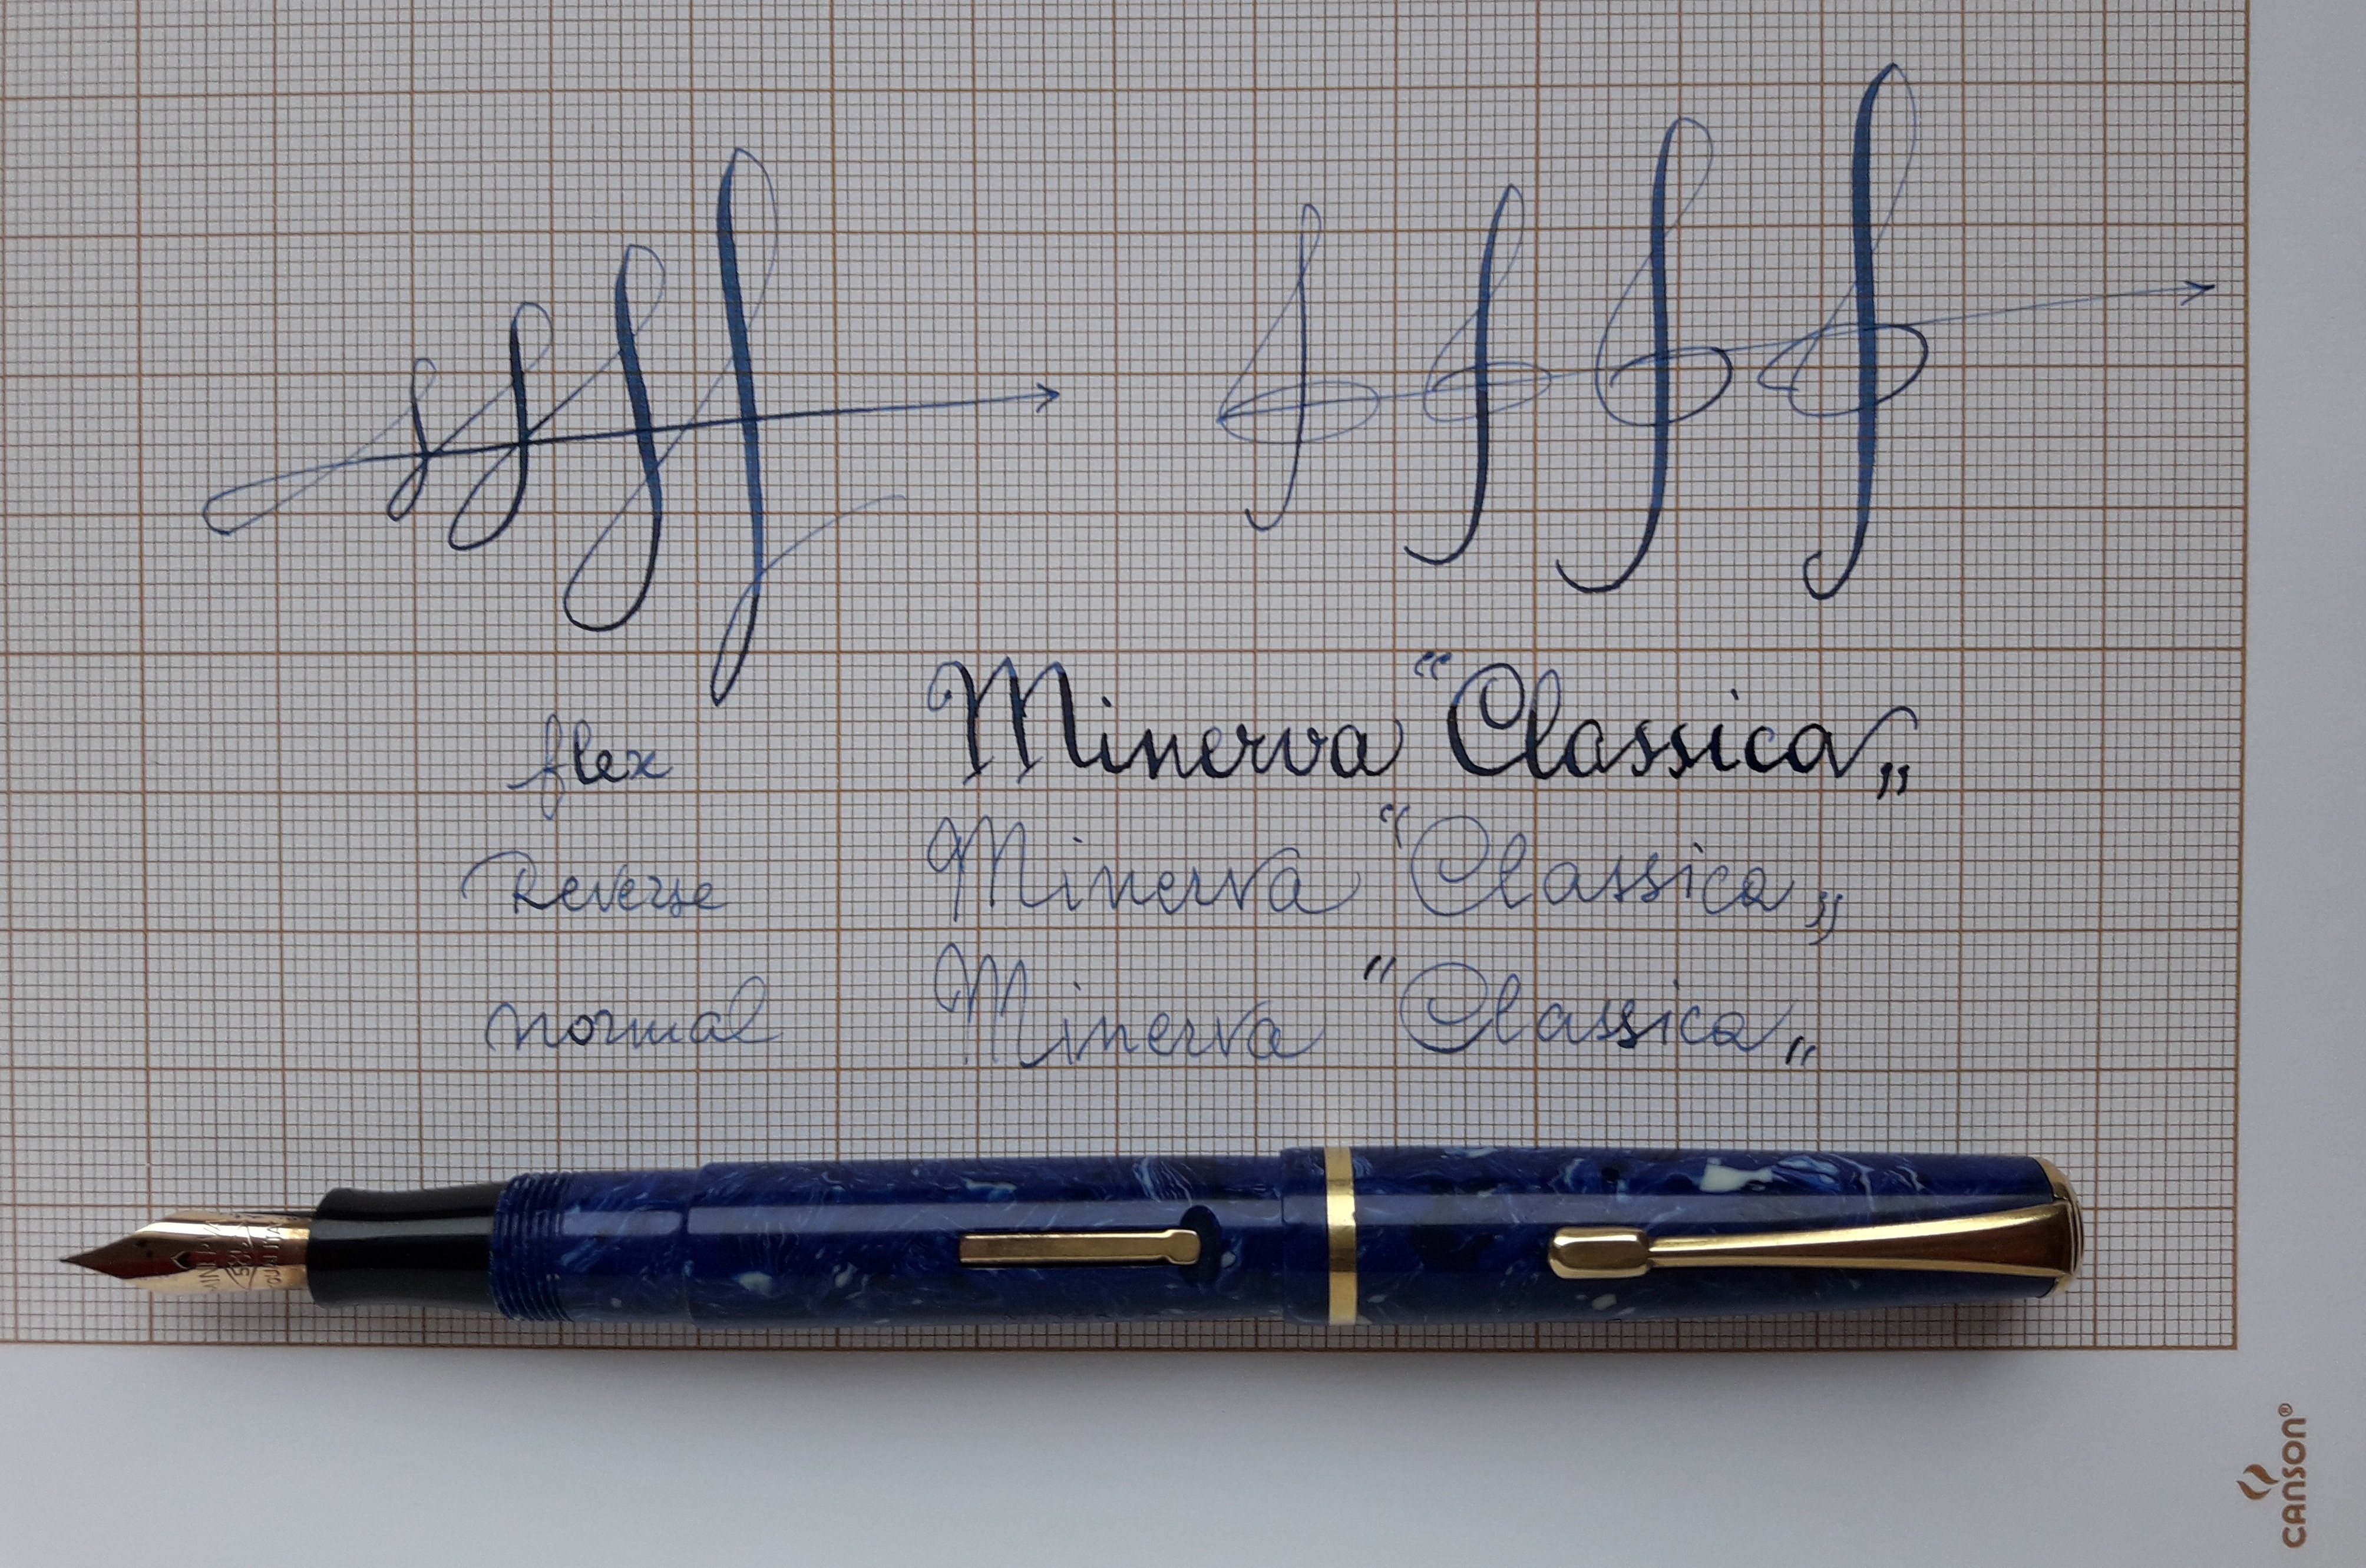 flex Minerva “Classica„
Reverse Minerva “Classica„
normal Minerva "Classica„
CANSON®